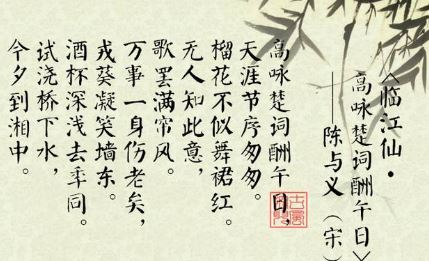 《临江仙·
高咏楚词酬午日》
——陈与义（宋）
高咏楚词酬午日，
天涯节序匆匆。
榴花不似舞裙红。
无人知此意，
歌罢满帘风。
万事一身伤老矣，
戎葵凝笑墙东。
酒杯深浅去年同。
试浇桥下水，
今夕到湘中。